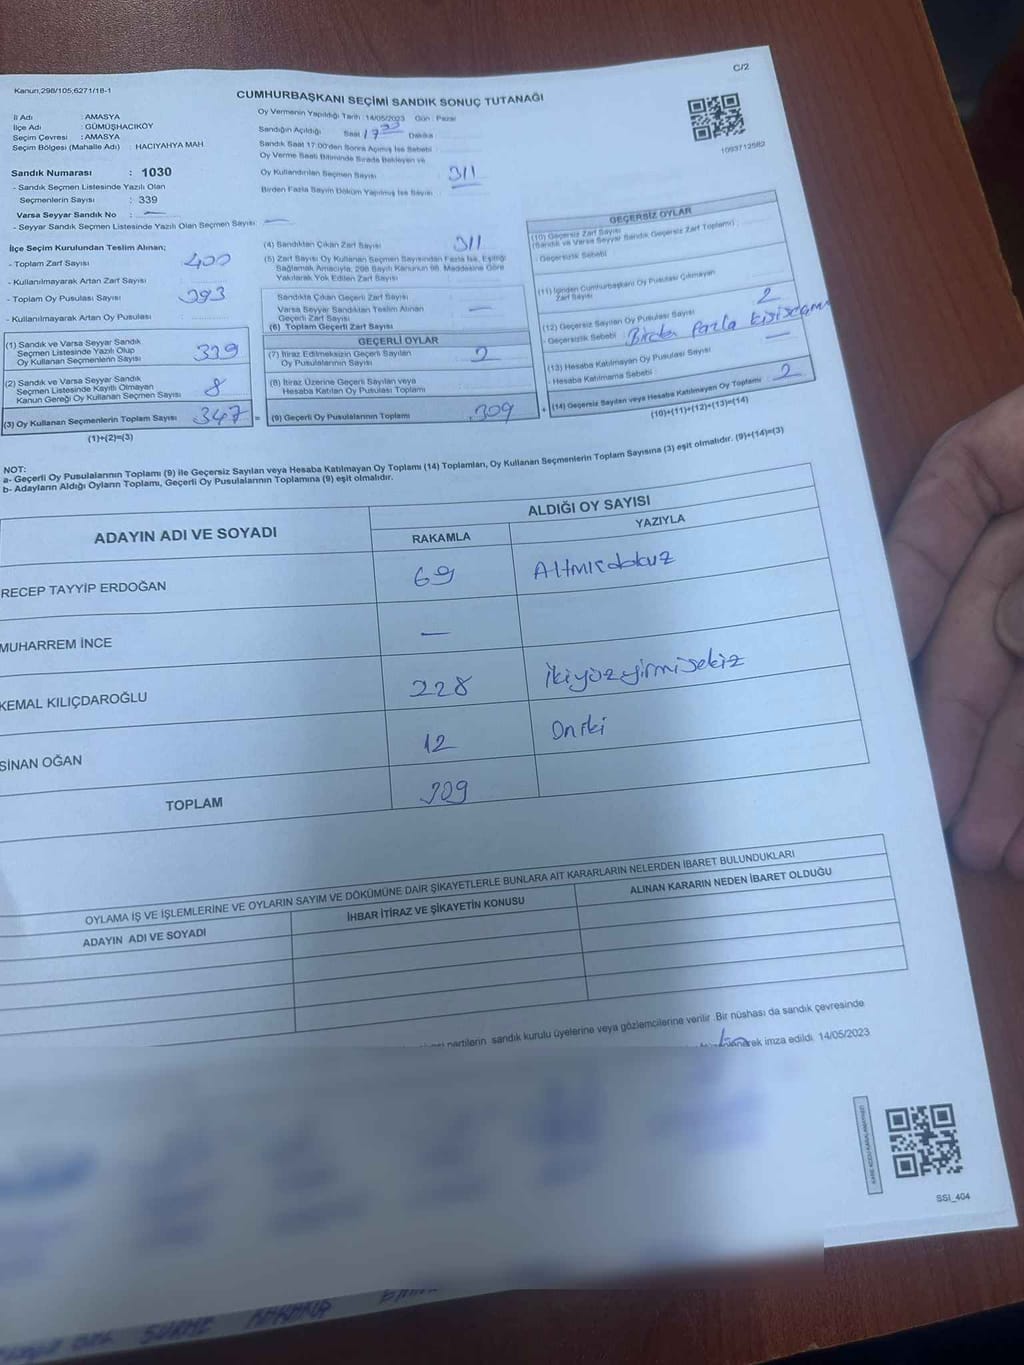 Kanun,298/105,6271/18-1
C/2
CUMHURBAŞKANI SEÇİMİ SANDIK SONUÇ TUTANAĞI
İl Adı : AMASYA
İlçe Adı : GÜMÜŞHACIKÖY
Seçim Çevresi : AMASYA
Seçim Bölgesi (Mahalle Adı) : HACIYAHYA MAH.
Sandık Numarası : 1030
- Sandık Seçmen Listesinde Yazılı Olan
Seçmenlerin Sayısı : 339
Varsa Seyyar Sandık No : —
- Seyyar Sandık Seçmen Listesinde Yazılı Olan Seçmen Sayısı: —
Oy Vermenin Yapıldığı Tarih : 14/05/2023 Gün : Pazar
Sandığın Açıldığı Saat : Dakika :
Sandık Saat 17:00'den Sonra Açılmış İse Sebebi :
Oy Verme Saati Bitiminde Sırada Bekleyen ve
Oy Kullandırılan Seçmen Sayısı : 311
Birden Fazla Sayım Döküm Yapılmış İse Sayısı :
1093712582
İlçe Seçim Kurulundan Teslim Alınan;
- Toplam Zarf Sayısı 400
- Kullanılmayarak Artan Zarf Sayısı :
- Toplam Oy Pusulası Sayısı : 393
- Kullanılmayarak Artan Oy Pusulası :
(1) Sandık ve Varsa Seyyar Sandık
Seçmen Listesinde Yazılı Olup
Oy Kullanan Seçmenlerin Sayısı 339
(2) Sandık ve Varsa Seyyar Sandık
Seçmen Listesinde Kayıtlı Olmayan
Kanun Gereği Oy Kullanan Seçmen Sayısı 8
(3) Oy Kullanan Seçmenlerin Toplam Sayısı 347 =
(1)+(2)=(3)
(4) Sandıktan Çıkan Zarf Sayısı 311
(5) Zarf Sayısı Oy Kullanan Seçmen Sayısından Fazla İse, Eşitliği
Sağlamak Amacıyla, 298 Sayılı Kanunun 98. Maddesine Göre
Yakılarak Yok Edilen Zarf Sayısı :
Sandıkta Çıkan Geçerli Zarf Sayısı :
Varsa Seyyar Sandıktan Teslim Alınan
Geçerli Zarf Sayısı : —
(6) Toplam Geçerli Zarf Sayısı
GEÇERLİ OYLAR
(7) İtiraz Edilmeksizin Geçerli Sayılan
Oy Pusulalarının Sayısı : 2
(8) İtiraz Üzerine Geçerli Sayılan veya
Hesaba Katılan Oy Pusulası Toplamı :
(9) Geçerli Oy Pusulalarının Toplamı : 309 +
GEÇERSİZ OYLAR
(10) Geçersiz Zarf Sayısı
(Sandık ve Varsa Seyyar Sandık Geçersiz Zarf Toplamı) :
- Geçersizlik Sebebi :
(11) İçinden Cumhurbaşkanı Oy Pusulası Çıkmayan
Zarf Sayısı :
(12) Geçersiz Sayılan Oy Pusulası Sayısı : 2
- Geçersizlik Sebebi : Birden fazla kişi
(13) Hesaba Katılmayan Oy Pusulası Sayısı : —
- Hesaba Katılmama Sebebi :
(14) Geçersiz Sayılan veya Hesaba Katılmayan Oy Toplamı : 2
(10)+(11)+(12)+(13)=(14)
NOT:
a- Geçerli Oy Pusulalarının Toplamı (9) ile Geçersiz Sayılan veya Hesaba Katılmayan Oy Toplamı (14) Toplamları, Oy Kullanan Seçmenlerin Toplam Sayısına (3) eşit olmalıdır. (9)+(14)=(3)
b- Adayların Aldığı Oyların Toplamı, Geçerli Oy Pusulalarının Toplamına (9) eşit olmalıdır.
ADAYIN ADI VE SOYADI
ALDIĞI OY SAYISI
RAKAMLA YAZIYLA
RECEP TAYYİP ERDOĞAN 69 Altmışdokuz
MUHARREM İNCE —
KEMAL KILIÇDAROĞLU 228 İkiyüzyirmisekiz
SİNAN OĞAN 12 Oniki
TOPLAM 309
OYLAMA İŞ VE İŞLEMLERİNE VE OYLARIN SAYIM VE DÖKÜMÜNE DAİR ŞİKAYETLERLE BUNLARA AİT KARARLARIN NELERDEN İBARET BULUNDUKLARI
ADAYIN ADI VE SOYADI İHBAR İTİRAZ VE ŞİKAYETİN KONUSU ALINAN KARARIN NEDEN İBARET OLDUĞU
partilerin sandık kurulu üyelerine veya gözlemcilerine verilir .Bir nüshası da sandık çevresinde
imza edildi. 14/05/2023
KARE KODU KARALAMAYINIZ!
SSI_404
SÜRME